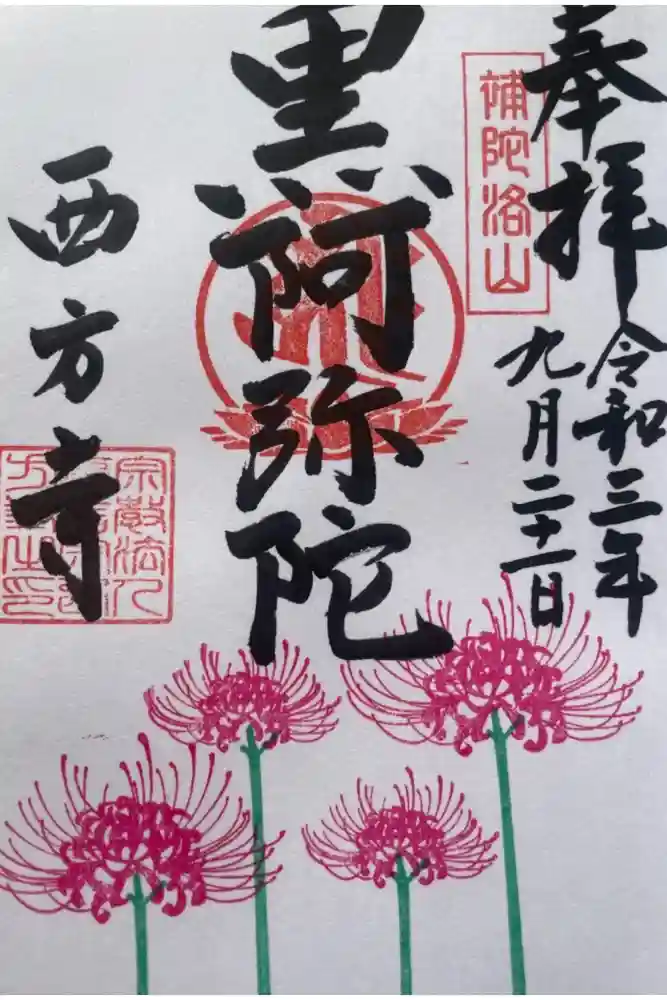 奉拝
令和三年
九月二十一日
補陀洛山
黒阿弥陀
西方寺